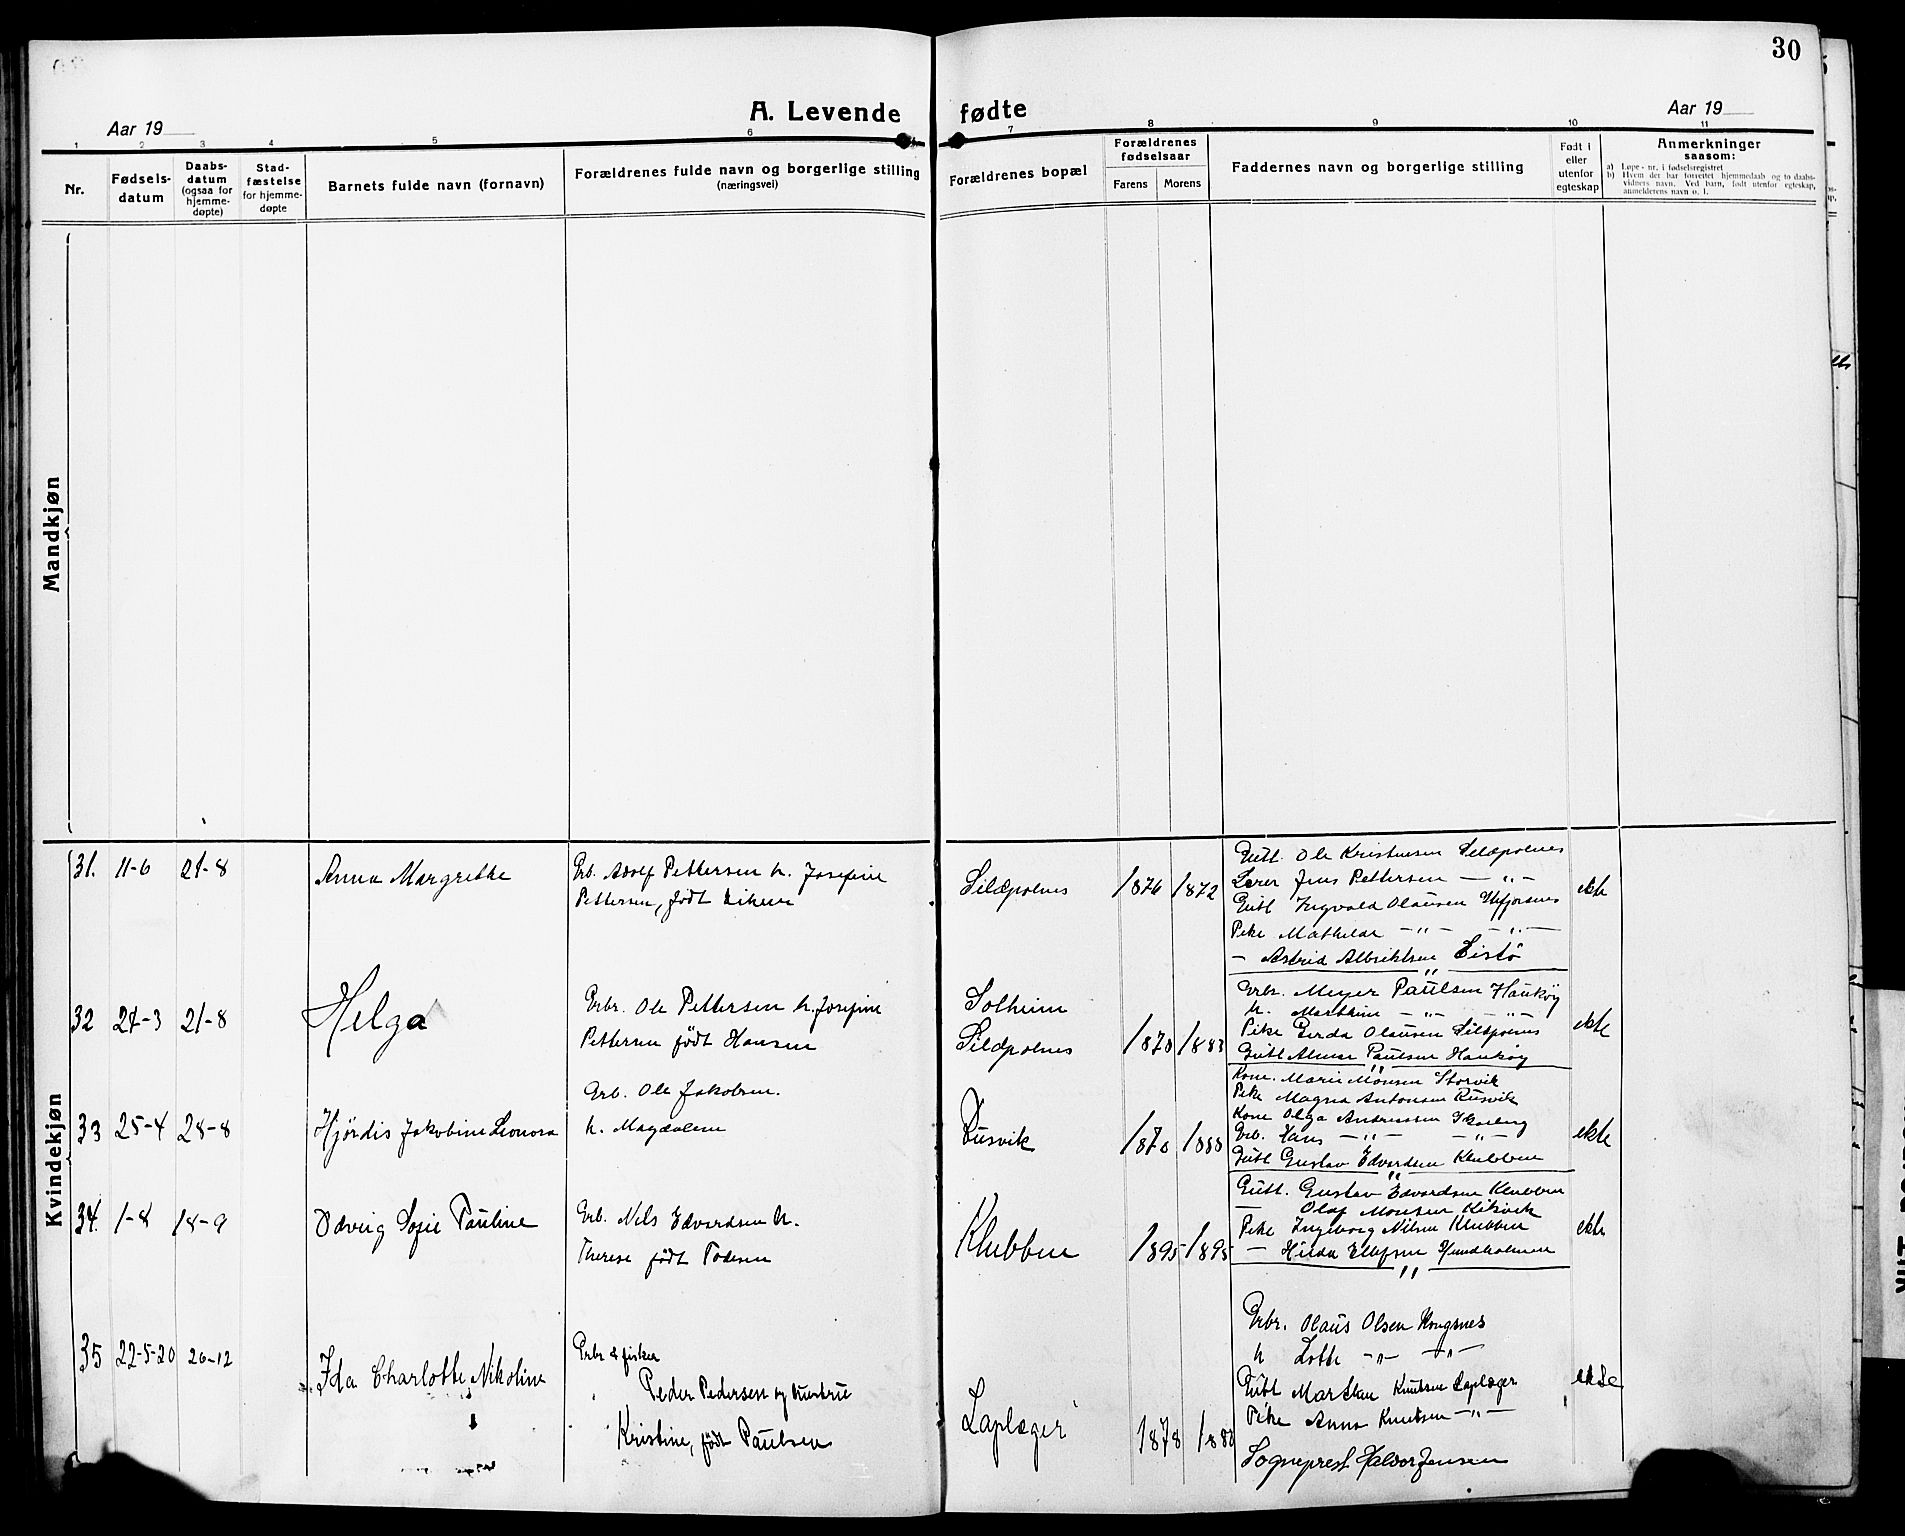 30
A. Levende fødte
Aar 19
Aar 19
1 2 3 4 5 6 7 8 9 10 11
Nr.
Fødsels-
datum
Daabs-
datum
(ogsaa for
hjemme-
døpte)
Stad-
fæstelse
for hjemme-
døpte
Barnets fulde navn (fornavn)
Forældrenes fulde navn og borgerlige stilling
(næringsvei)
Forældrenes bopæl
Forældrenes
fødselsaar
Farens
Morens
Faddernes navn og borgerlige stilling
Født i
eller
utenfor
egteskap
Anmerkninger
saasom:
a) Løpe-nr. i fødselsregistret
b) Hvem der har forrettet hjemmedaab og to daabs-
vidners navn. Ved barn, født utenfor egteskap,
anmelderens navn o. l.
Mandkjøn
Kvindekjøn
31. 11-6 21-8
Anna Margrethe
Erb. Adolf Pettersen h. Josefine
Pettersen, født
Sildpolnes
1876 1872
Gutt. Ole Kristensen Sildpolnes
Lærer Jens Pettersen — " —
Gutt Ingvald Olausen
Pike Mathilde — " — — " —
— Astrid Albriktsen
ekte
32 24-3 21-8
Helga
Erbr. Ole Pettersen h. Josefine
Pettersen født Hansen
Solheim
Sildpolnes
1870 1883
Erbr. Meyer Paulsen Haukøy
h. Marthine — " — — " —
Pike Gerda Olausen Sildpolnes
Gutt Almar Paulsen Haukøy
ekte
33 25-4 28-8
Hjørdis Jakobine Leonora
Erb. Ole Jakobsen.
h. Magdalene
Rusvik
1870 1880
Kone. Marie Monsen Storvik
Pike Magna Antonsen Rusvik
Kone Olga Andreassen
Erb. Hans — " — — " —
Gutt Gustav Edvardsen Klubben
ekte
34. 1-8 18-9
Odveig Sofie Pauline
Erb. Nils Edvardsen h.
Therese født
Klubben
1895 1895
Gutt. Gustav Edvardsen Klubben
— Olaf Monsen
Pike Ingeborg Nilsen Klubben
— Hilda Ellefsen Hundholmen
ekte
35 22-5-20 26-12
Ida Charlotte Nikoline
Erbr & fisker
Peder Pedersen og hustrue
Kristine, født Paulsen
Laplæger
1878 1880
Erbr. Olaus Olsen Kongsnes
h Lotte — " — — " —
Gutt Marthin Knutsen Laplæger
Pike Anna Knutsen — " —
Sogneprest Halvor Jensen
ekte